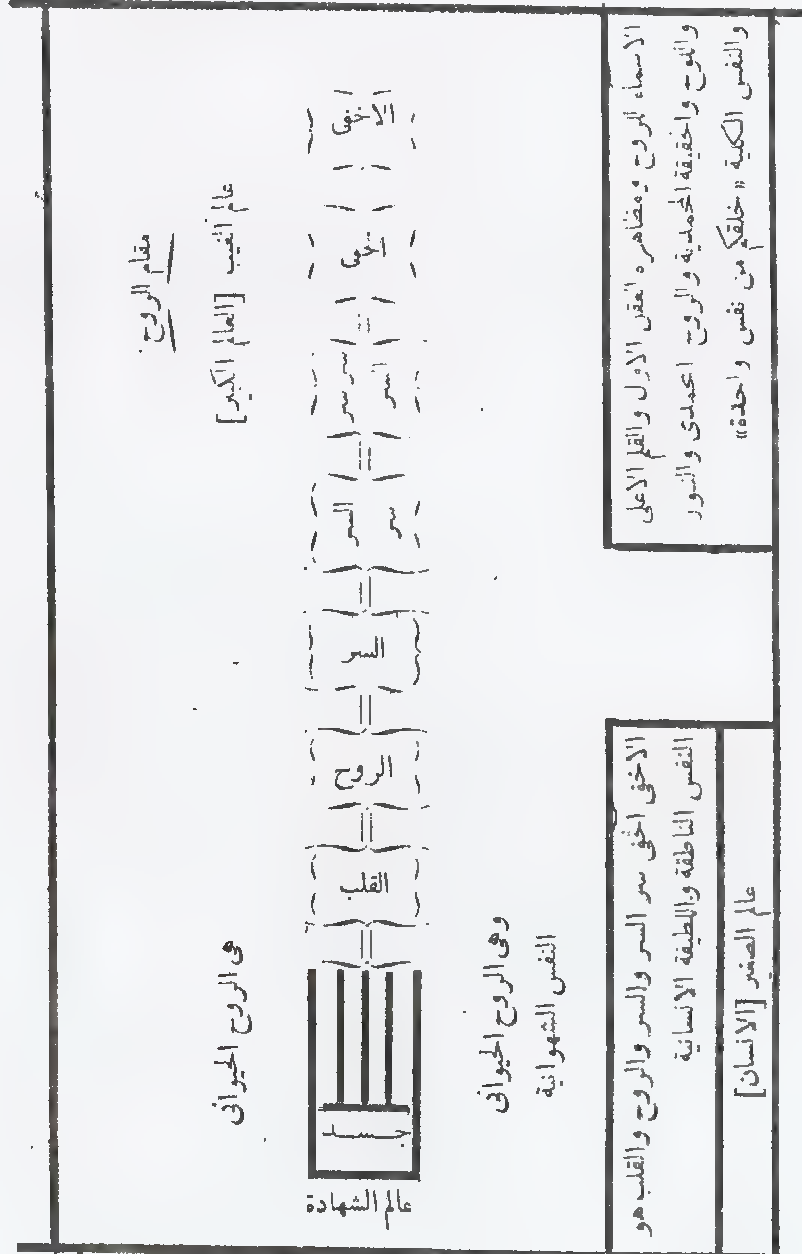 مقام الروح
عالم الغيب [العالم الكبير]
الاخفى
سر سر
السر
سر
السر
السر
الروح
القلب
جسد
عالم الشهادة
هى الروح الحيوانى
وهى الروح الحيوانى
النفس الشهوانية
الاسماء للروح ومضاهره العقل الاول والقلم الاعلى
واللوح والحقيقة المحمدية والروح المحمدى والنور
والنفس الكلية «خلقكم من نفس واحدة»
الاخفى الخفى سر السر والسر والروح والقلب هو
النفس الناطقة واللطيفة الانسانية
عالم الصغير [الانسان]